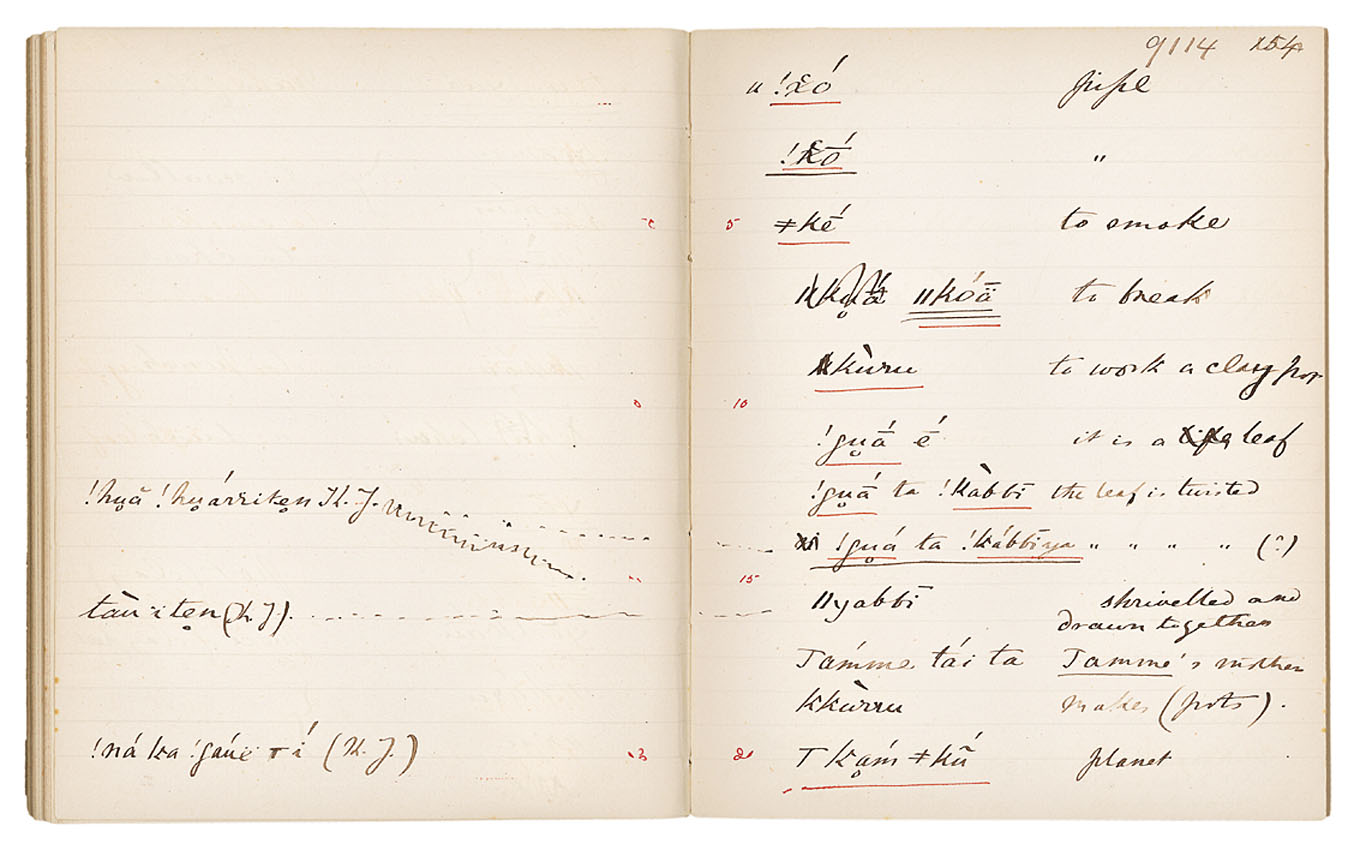 !hu̥ã !hu̥árriten̥ K. J.
tàu ї ten̥ (K. J.)
!ná ka !gaúë т í (K. J.)
9114 154
" !χó pipe
!kṓ "
5 ǂkḗ to smoke
ǁkóǟ to break
kùrru to work a clay pot
10
!gu̥ā́ ḗ it is a leaf
!gu̥ā́ ta !kàbbī the leaf is twisted
!gu̥á ta !kábbīya " " " " (?)
15
ǁyabbī shrivelled and
drawn together
Támme tái ta Tamme's mother
kkùrru makes (pots).
20 T k̥ám ǂkũ planet